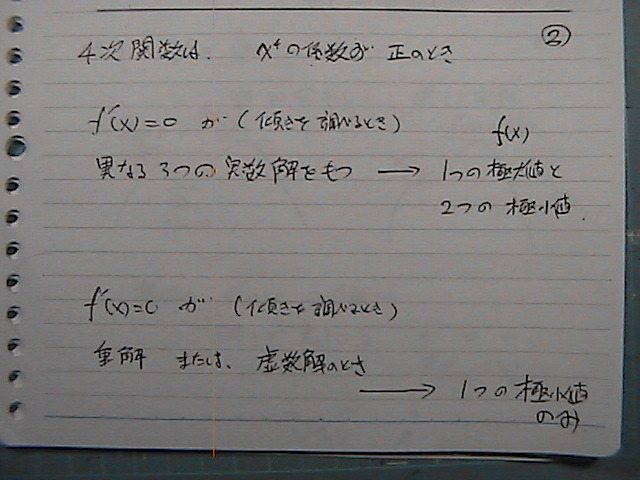 ②
4次関数は、 x⁴の係数が 正のとき
f'(x)=0 が (傾きを調べるとき) f(x)
異なる3つの実数解をもつ → 1つの極大値と
2つの極小値.
f'(x)=0 が (傾きを調べるとき)
重解 または、虚数解のとき
→ 1つの極小値
のみ